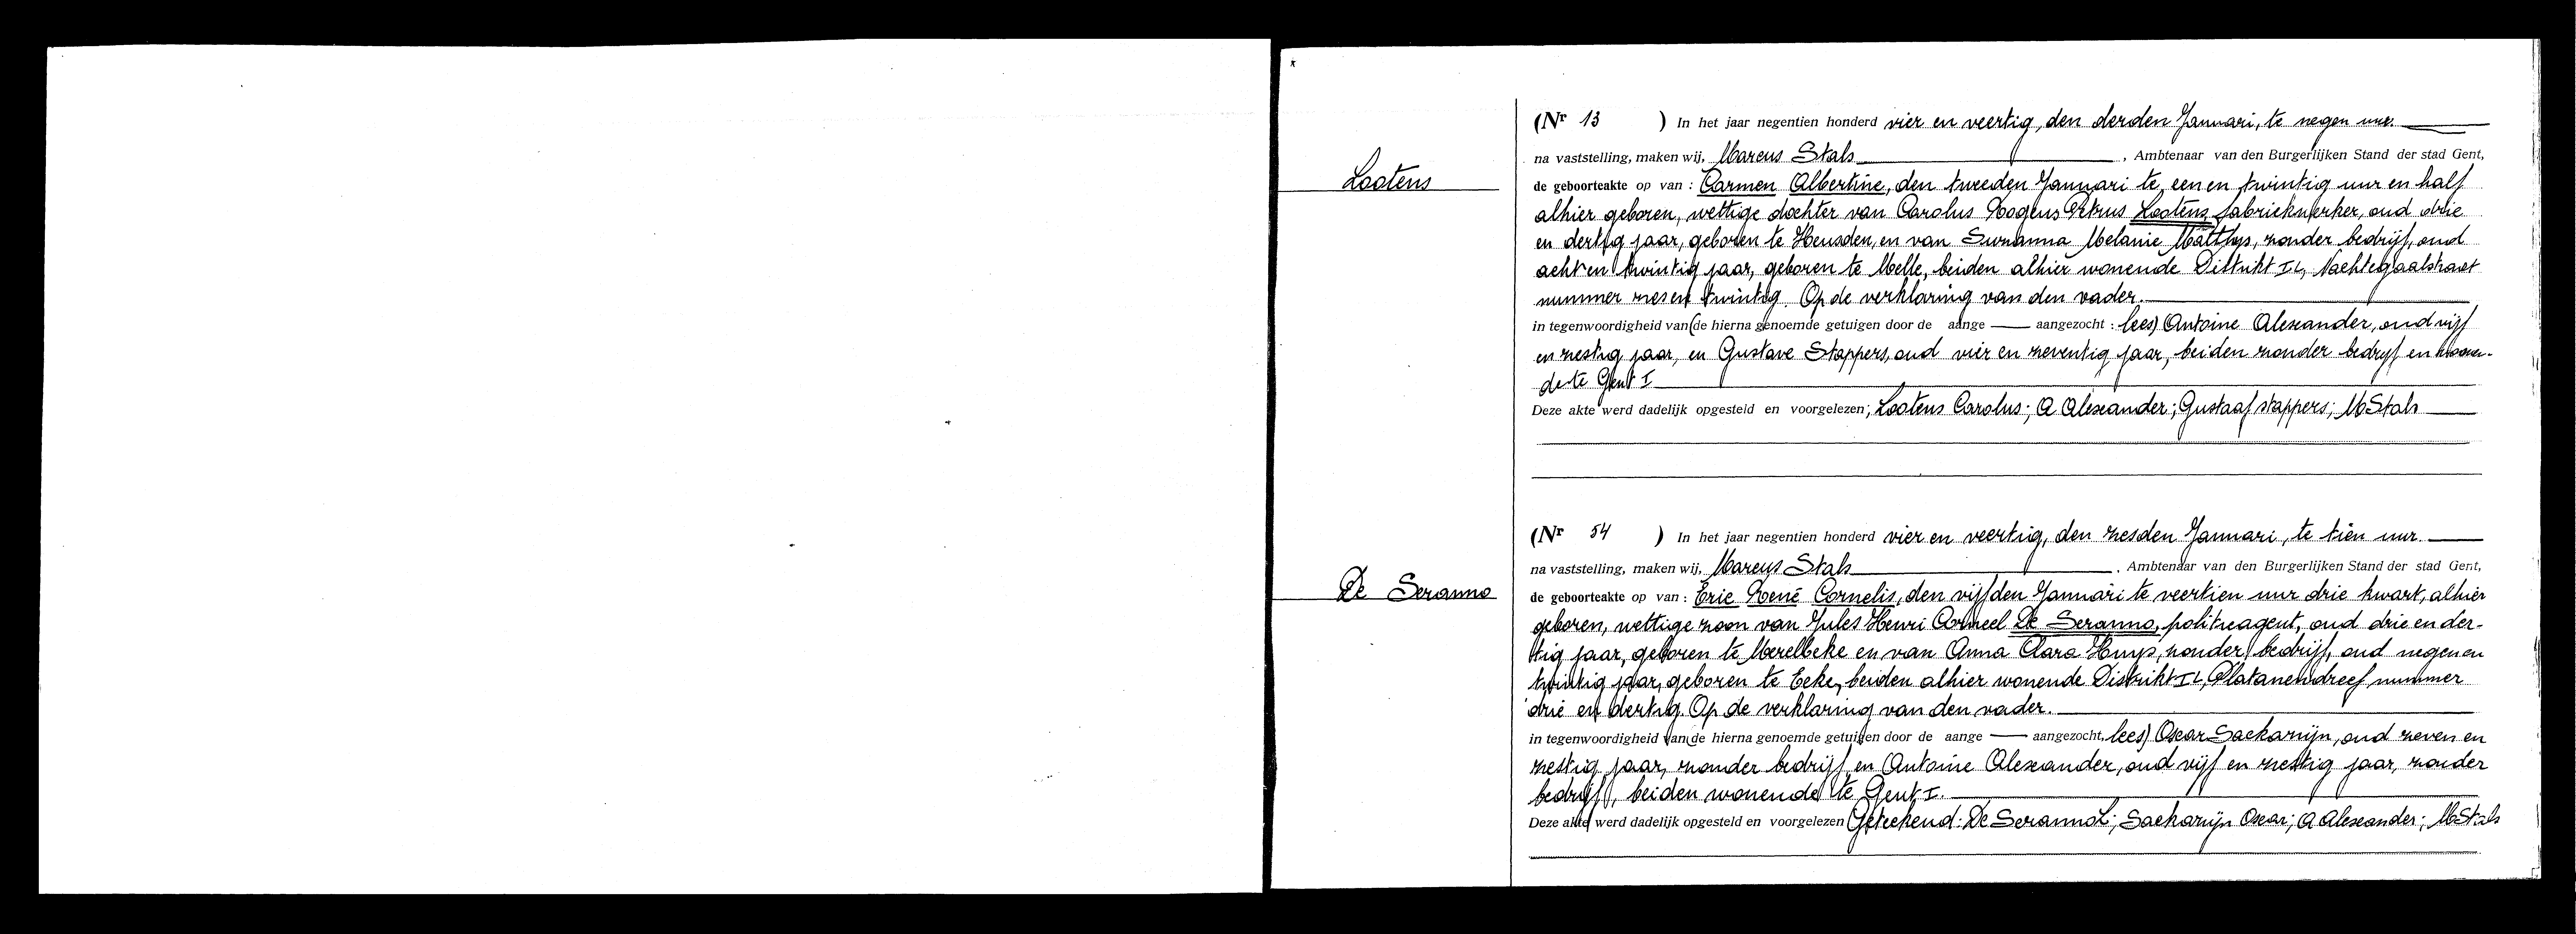 Lootens
(Nr 13 ) In het jaar negentien honderd vier en veertig, den derden Januari, te negen uur.
na vaststelling, maken wij, Marcus Stals , Ambtenaar van den Burgerlijken Stand der stad Gent,
de geboorteakte op van : Carmen Albertine, den tweeden Januari te een en twintig uur en half
alhier geboren, wettige dochter van Carolus Petrus Lootens, fabriekwerker, oud drie
en dertig jaar, geboren te Heusden, en van Suzanna Melanie Matthys, zonder bedrijf, oud
acht en twintig jaar, geboren te Melle, beiden alhier wonende Distrikt Nachtegaalstraat
nummer zes en twintig. Op de verklaring van den vader.
in tegenwoordigheid van (de hierna genoemde getuigen door de aange aangezocht : lees) Antoine Alexander, oud vijf
en zestig jaar, en Gustave Stappers, oud vier en zeventig jaar, beiden zonder bedrijf en wonen-
de te Gent I
Deze akte werd dadelijk opgesteld en voorgelezen; Lootens Carolus; A Alexander; Gustaaf stappers; M Stals
De Seranno
(Nr 54 ) In het jaar negentien honderd vier en veertig, den zesden Januari, te tien uur.
na vaststelling, maken wij, Marcus Stals , Ambtenaar van den Burgerlijken Stand der stad Gent,
de geboorteakte op van : Eric René Cornelis, den vijfden Januari te veertien uur drie kwart, alhier
geboren, wettige zoon van Jules Henri De Seranno, politieagent, oud drie en der-
tig jaar, geboren te Merelbeke en van Anna Clara Huys, zonder bedrijf, oud negen en
twintig jaar, geboren te Eeke, beiden alhier wonende Distrikt Platanendreef nummer
drie en dertig. Op de verklaring van den vader.
in tegenwoordigheid van (de hierna genoemde getuigen door de aange aangezocht, lees) Oscar Sackarijn, oud zeven en
zestig jaar, zonder bedrijf en Antoine Alexander, oud vijf en zestig jaar, zonder
bedrijf, beiden wonende te Gent I.
Deze akte werd dadelijk opgesteld en voorgelezen Geteekend: De Seranno; Sackarijn Oscar; A Alexander; M Stals